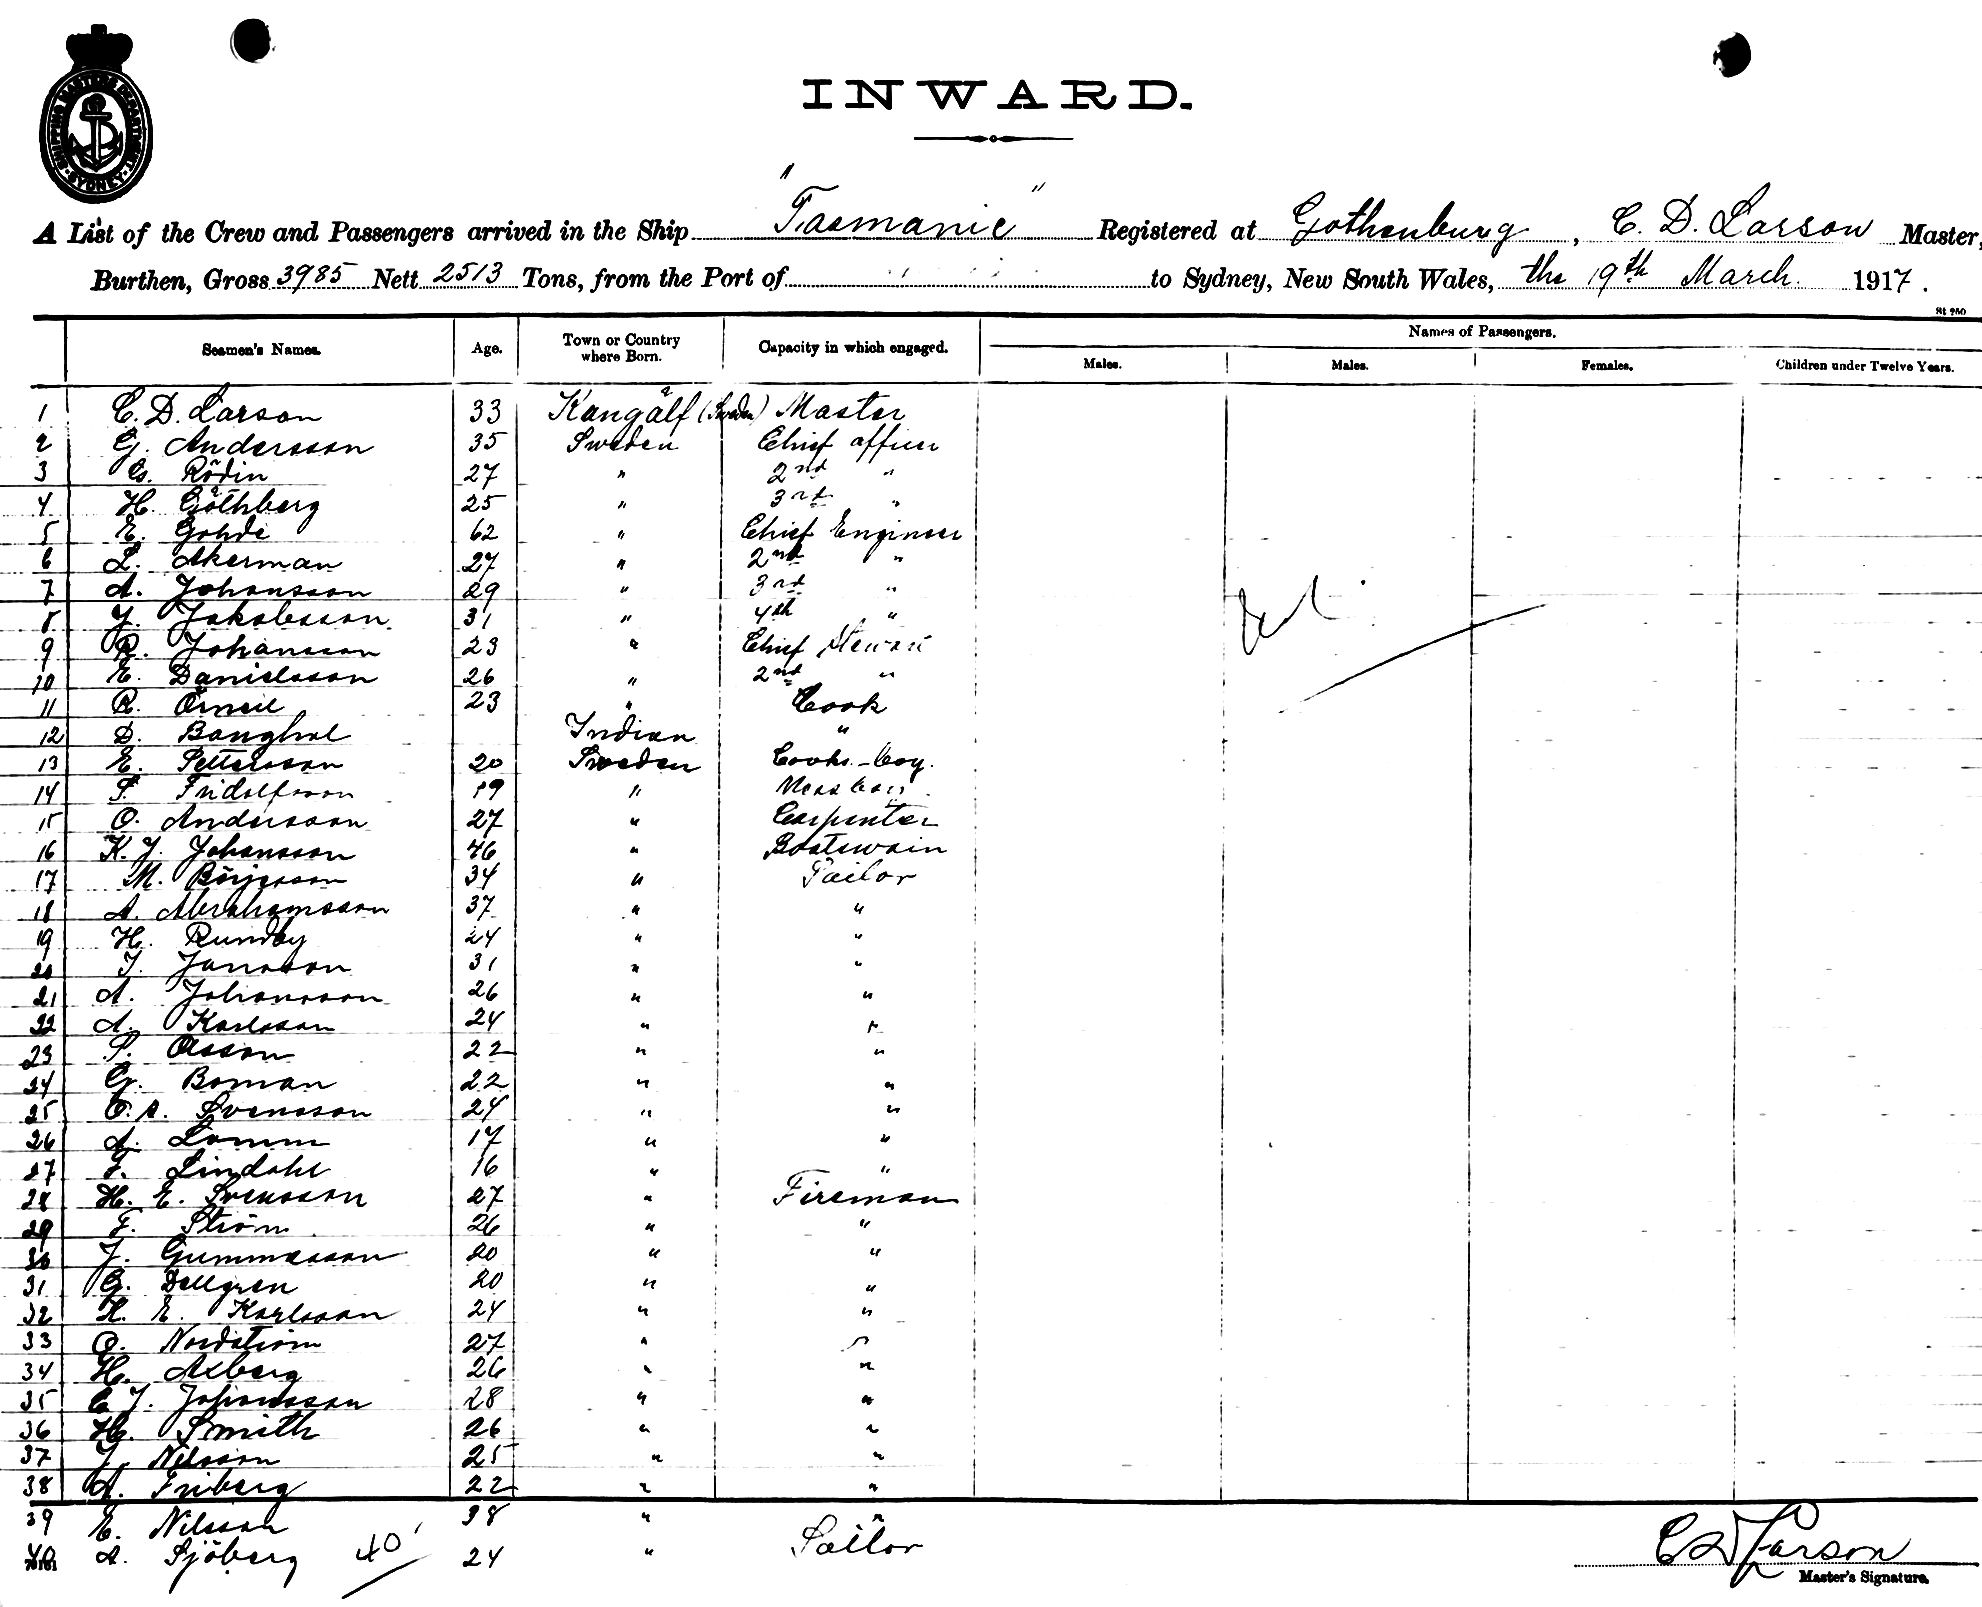 SHIPPING MASTERS DEPARTMENT SYDNEY
INWARD.
A List of the Crew and Passengers arrived in the Ship "Tasmanic" Registered at Gothenburg, C. D. Larson Master,
Burthen, Gross 3985 Nett 2513 Tons, from the Port of to Sydney, New South Wales, the 19th March. 1917.
St 250
Seamen's Names. Age. Town or Country where Born. Capacity in which engaged. Names of Passengers.
Males. Males. Females. Children under Twelve Years.
1 C. D. Larson 33 Kangälf (Sweden) Master
2 G. Andersson 35 Sweden Chief officer
3 G. Rödin 27 " 2nd "
4 H. Göthberg 25 " 3rd "
5 E. Gohde 62 " Chief Engineer
6 L. Akerman 27 " 2nd "
7 A. Johansson 29 " 3rd "
8 J. Jakobsson 31 " 4th "
9 R. Johansson 23 " Chief Steward
10 E. Danielsson 26 " 2nd "
11 R. 23 " Cook
12 D. Indian "
13 E. Pettersson 20 Sweden Cooks-boy.
14 Fridolfsson 19 " Messboy
15 O. Andersson 27 " Carpenter
16 K. J. Johansson 46 " Boatswain
17 M. Börjesson 34 " Sailor
18 A. Abrahamsson 37 " "
19 H. Rundby 24 " "
20 J. Jansson 31 " "
21 A. Johansson 26 " "
22 A. Karlsson 24 " "
23 S. Olsson 22 " "
24 G. Boman 22 " "
25 O. A. Svensson 24 " "
26 A. Lomm 17 " "
27 Lindahl 16 " "
28 H. E. Svensson 27 " Fireman
29 F. Ström 26 " "
30 J. Gummesson 20 " "
31 G. Dellgren 20 " "
32 K. E. Karlsson 24 " "
33 O. Nordström 27 " "
34 H. Alberg 26 " "
35 C J. Johansson 28 " "
36 H. Smith 26 " "
37 J. Nilsson 25 " "
38 A. Friberg 22 " "
39 E. Nilsson 38 " "
40 A. Sjöberg 40 24 " Sailor
C D Larson
Master's Signature.